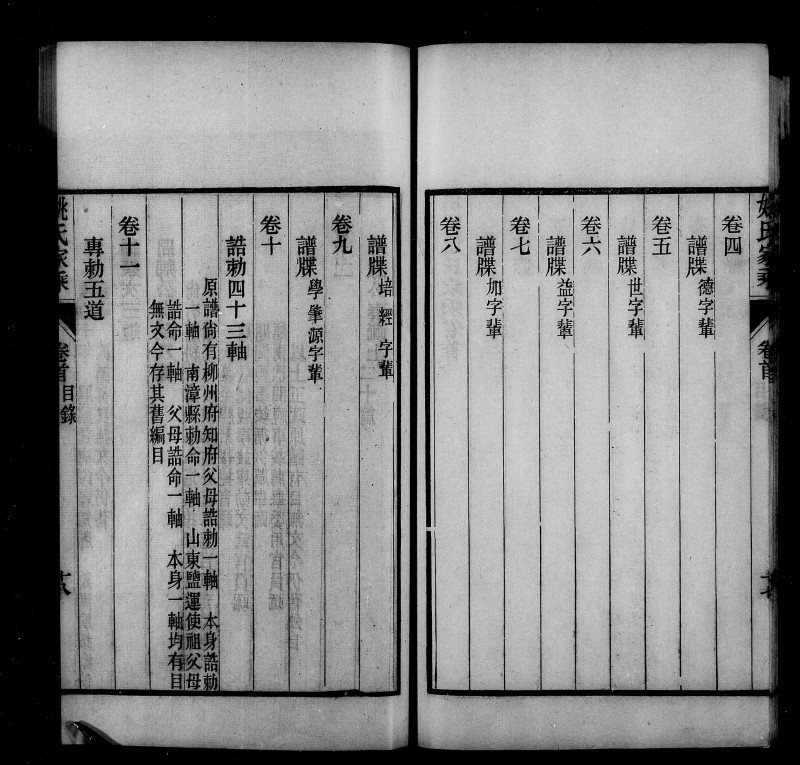 卷四
譜牒德字輩
卷五
譜牒世字輩
卷六
譜牒益字輩
卷七
譜牒加字輩
卷八
譜牒培經字輩
卷九
譜牒學肇源字輩
卷十
誥勅四十三軸
原譜尙有柳州府知府父母誥勅一軸 本身誥勅
一軸 南漳縣勅命一軸 山東鹽運使祖父母
誥命一軸 父母誥命一軸 本身一軸均有目
無文今存其舊編目
卷十一
專勅五道
姚氏家乘 卷首 目錄